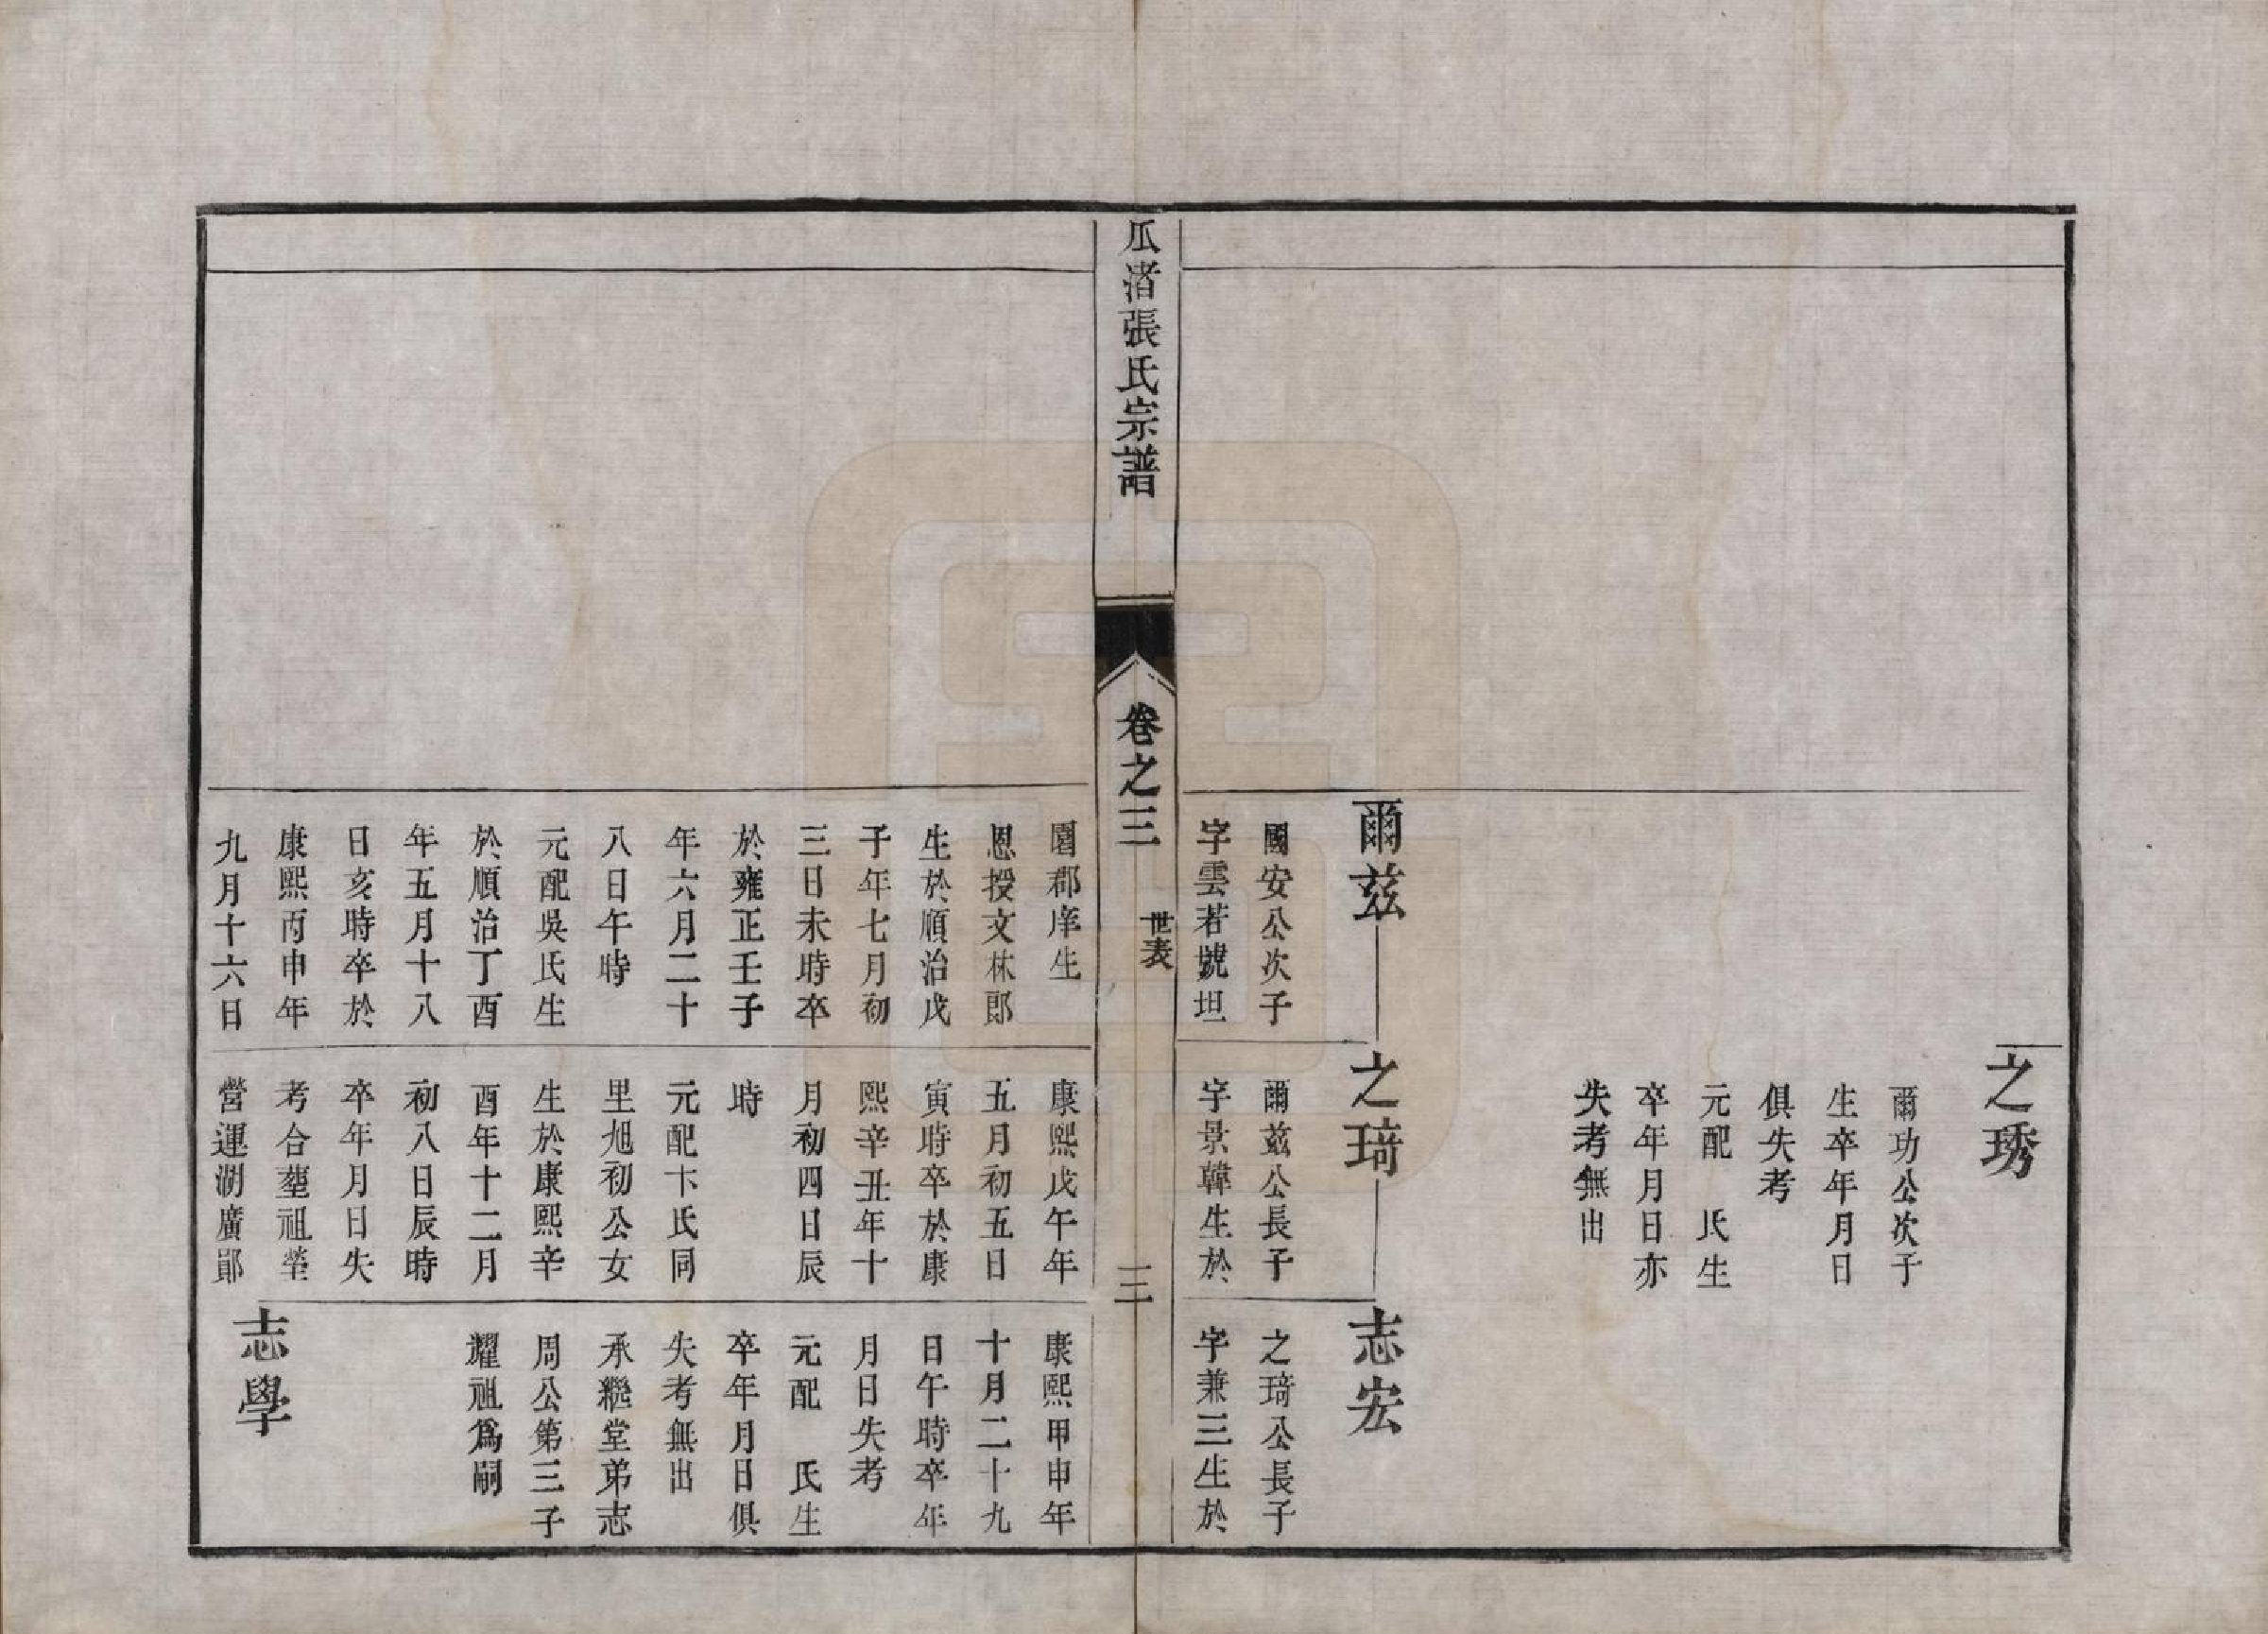 之琇
爾功公次子
生卒年月日
俱失考
元配　氏生
卒年月日亦
失考無出
爾兹
國安公次子
字雲若號坦
之琦
爾兹公長子
字景韓生於
志宏
之琦公長子
字兼三生於
瓜渚張氏宗譜
卷之三
世表
三
園郡庠生
恩授文林郎
生於順治戊
子年七月初
三日未時卒
於雍正壬子
年六月二十
八日午時
元配吳氏生
於順治丁酉
年五月十八
日亥時卒於
康熙丙申年
九月十六日
康熙戊午年
五月初五日
寅時卒於康
熙辛丑年十
月初四日辰
時
元配卞氏同
里旭初公女
生於康熙辛
酉年十二月
初八日辰時
卒年月日失
考合塟祖塋
營運湖廣鄖
康熙甲申年
十月二十九
日午時卒年
月日失考
元配　氏生
卒年月日俱
失考無出
承繼堂弟志
周公第三子
耀祖爲嗣
志學